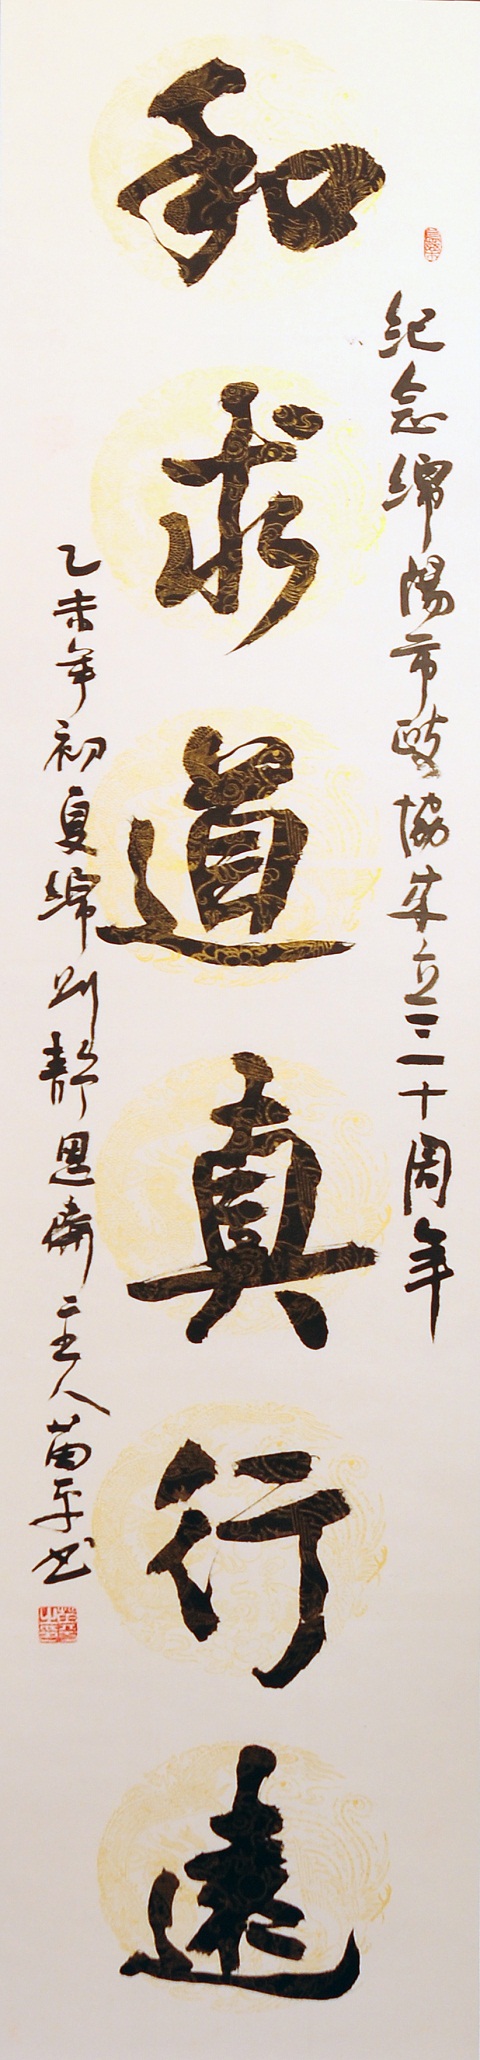 纪念绵阳市政协成立三十周年
和求道真行远
乙未年初夏绵州静思斋主人苗平书